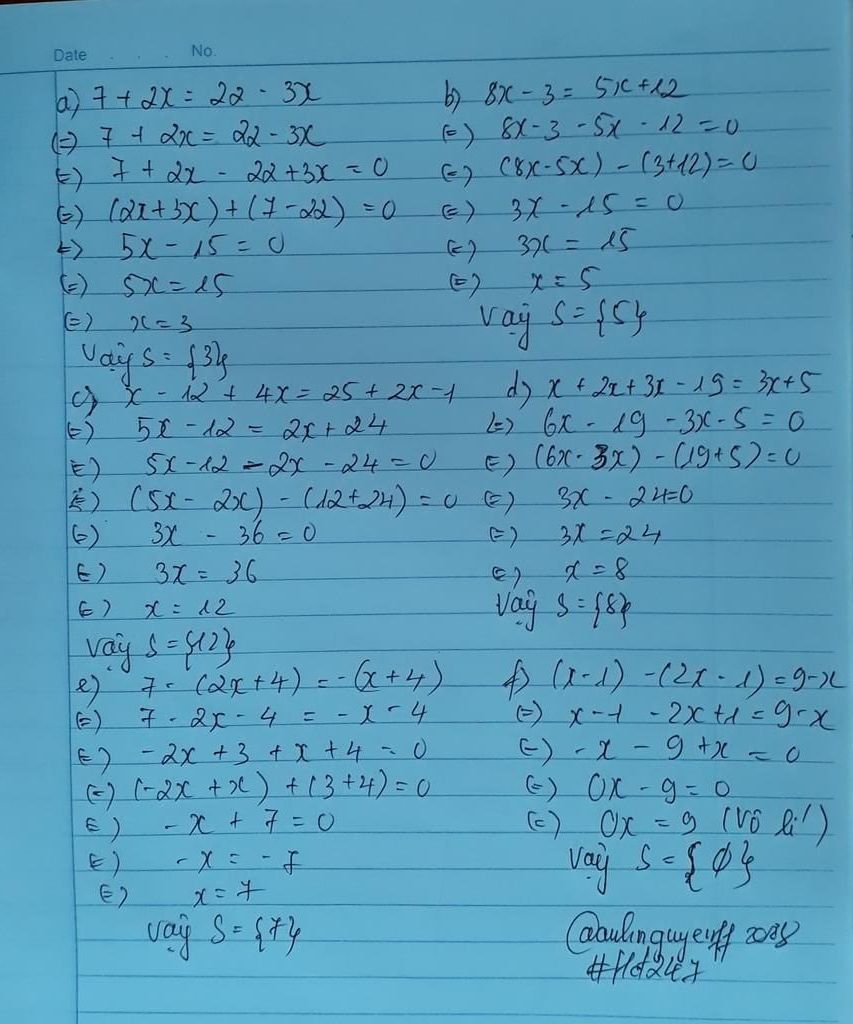 Date . . . No.
a) 7 + 2x = 22 - 3x
(=) 7 + 2x = 22 - 3x
(=) 7 + 2x - 22 + 3x = 0
(=) (2x+3x) + (7-22) = 0
(=) 5x - 15 = 0
(=) 5x = 15
(=) x = 3
Vậy S = {3}
b) 8x - 3 = 5x + 12
(=) 8x - 3 - 5x - 12 = 0
(=) (8x-5x) - (3+12) = 0
(=) 3x - 15 = 0
(=) 3x = 15
(=) x = 5
Vậy S = {5}
c) x - 12 + 4x = 25 + 2x - 1
(=) 5x - 12 = 2x + 24
(=) 5x - 12 - 2x - 24 = 0
(=) (5x - 2x) - (12+24) = 0
(=) 3x - 36 = 0
(=) 3x = 36
(=) x = 12
Vậy S = {12}
d) x + 2x + 3x - 19 = 3x + 5
(=) 6x - 19 - 3x - 5 = 0
(=) (6x - 3x) - (19+5) = 0
(=) 3x - 24 = 0
(=) 3x = 24
(=) x = 8
Vậy S = {8}
e) 7 - (2x+4) = -(x+4)
(=) 7 - 2x - 4 = -x - 4
(=) -2x + 3 + x + 4 = 0
(=) (-2x + x) + (3+4) = 0
(=) -x + 7 = 0
(=) -x = -7
(=) x = 7
Vậy S = {7}
f) (x-1) - (2x-1) = 9-x
(=) x-1 - 2x+1 = 9-x
(=) -x - 9 + x = 0
(=) 0x - 9 = 0
(=) 0x = 9 (Vô lí)
Vậy S = {∅}